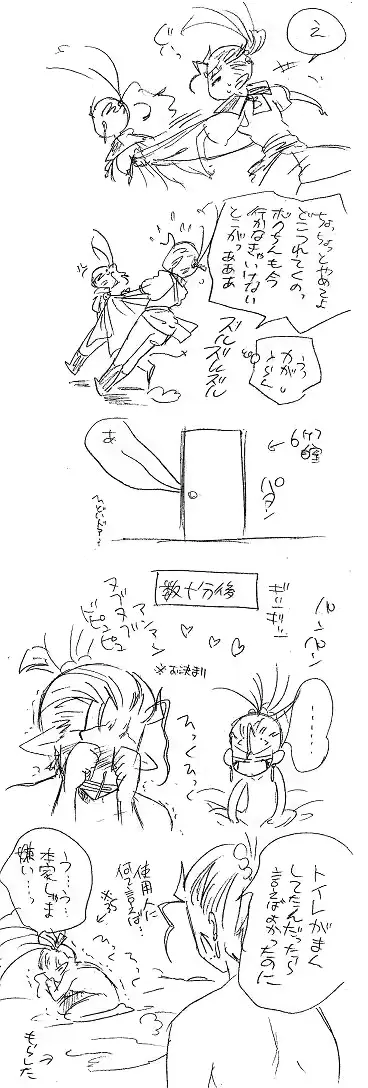 え
ちょっちょっとやめてよ
どこつれてくの、
ボクちんも今
行かなきゃいけない
とこがっあああ
ズルズルズル
あ
パタン
数十分後
アンアン
ヌブヌブ
ピュピュ
ギシギシ
パンパン
※お決まり
ひっくひっく
………
トイレがまん
してたんだったら
言えばよかったのに
使用人に
何て言えば…
う…うっ
本家じま
嫌い…っ
もらした